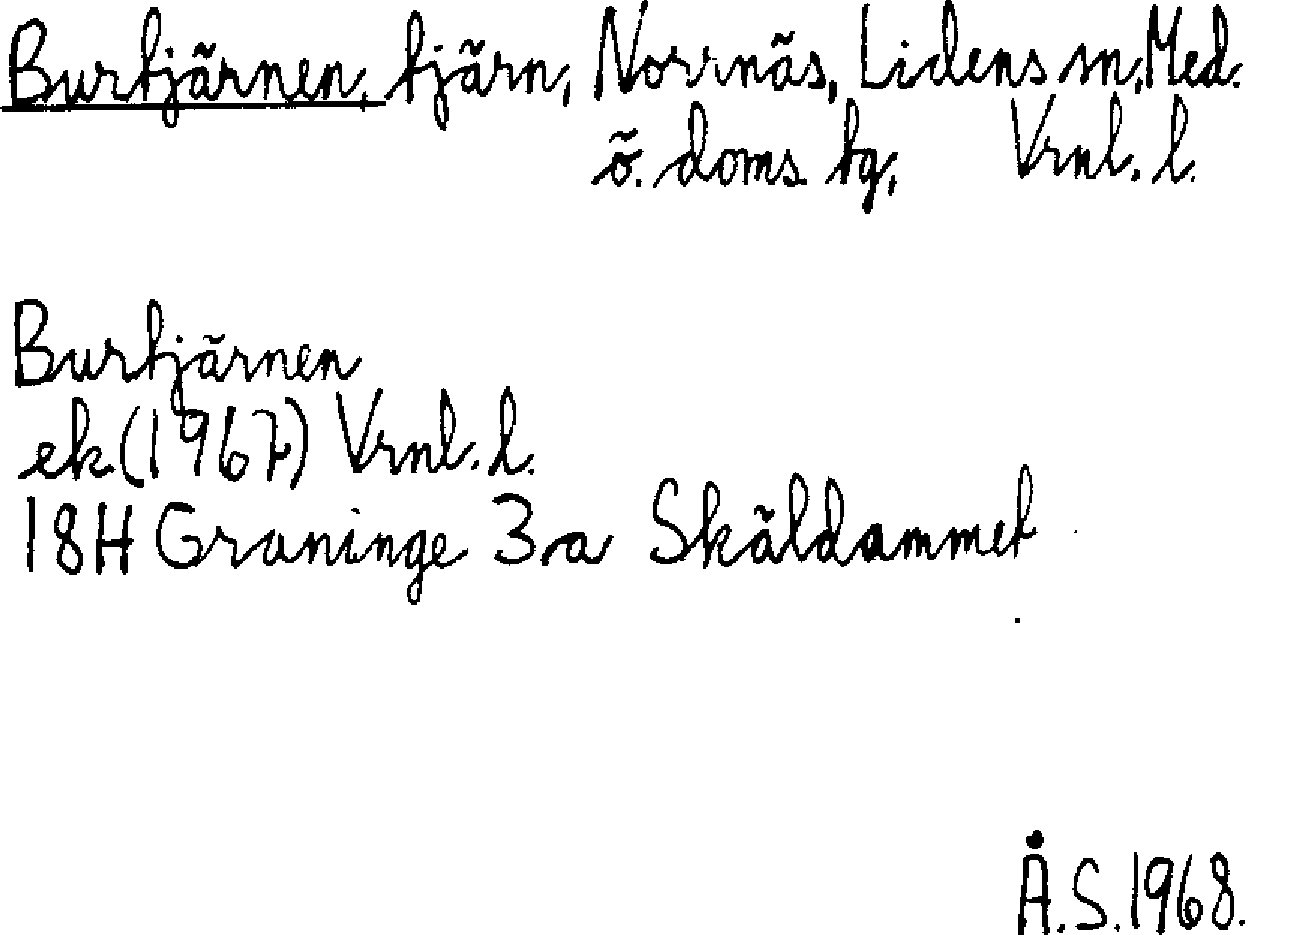 Burtjärnen, tjärn, Norrnäs, Lidens sn, Med.
ö. doms. tg, Vrnl. l.
Burtjärnen
ek (1967) Vrnl. l.
18H Graninge 3 a Skäldammet
Å.S. 1968.